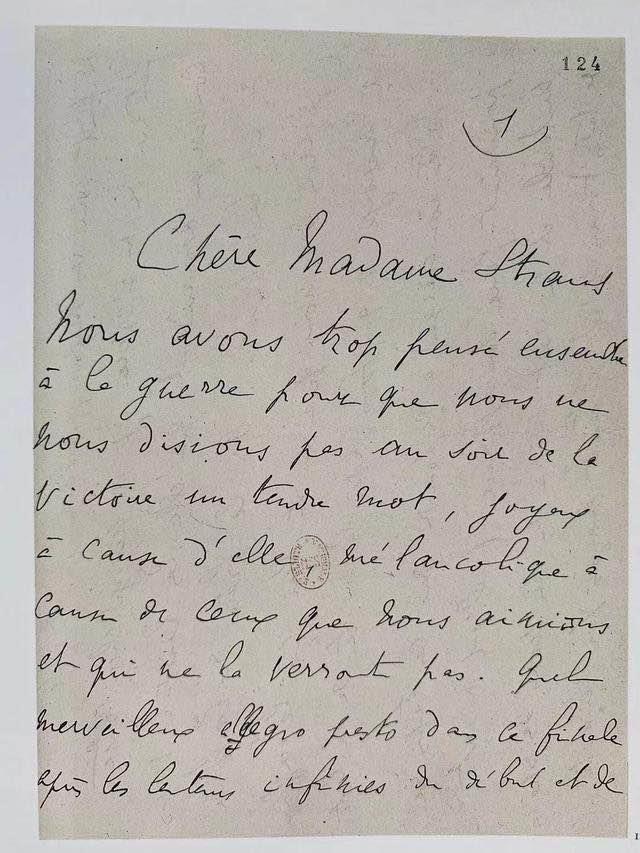 124
1
Chère Madame Straus
Nous avons trop pensé ensemble
à la guerre pour que nous ne
nous disions pas au soir de la
Victoire un tendre mot, joyeux
à cause d'elle, mélancolique à
cause de ceux que nous aimions
et qui ne la verront pas. Quel
merveilleux allegro presto dans ce finale
après les lenteurs infinies du début et de
1